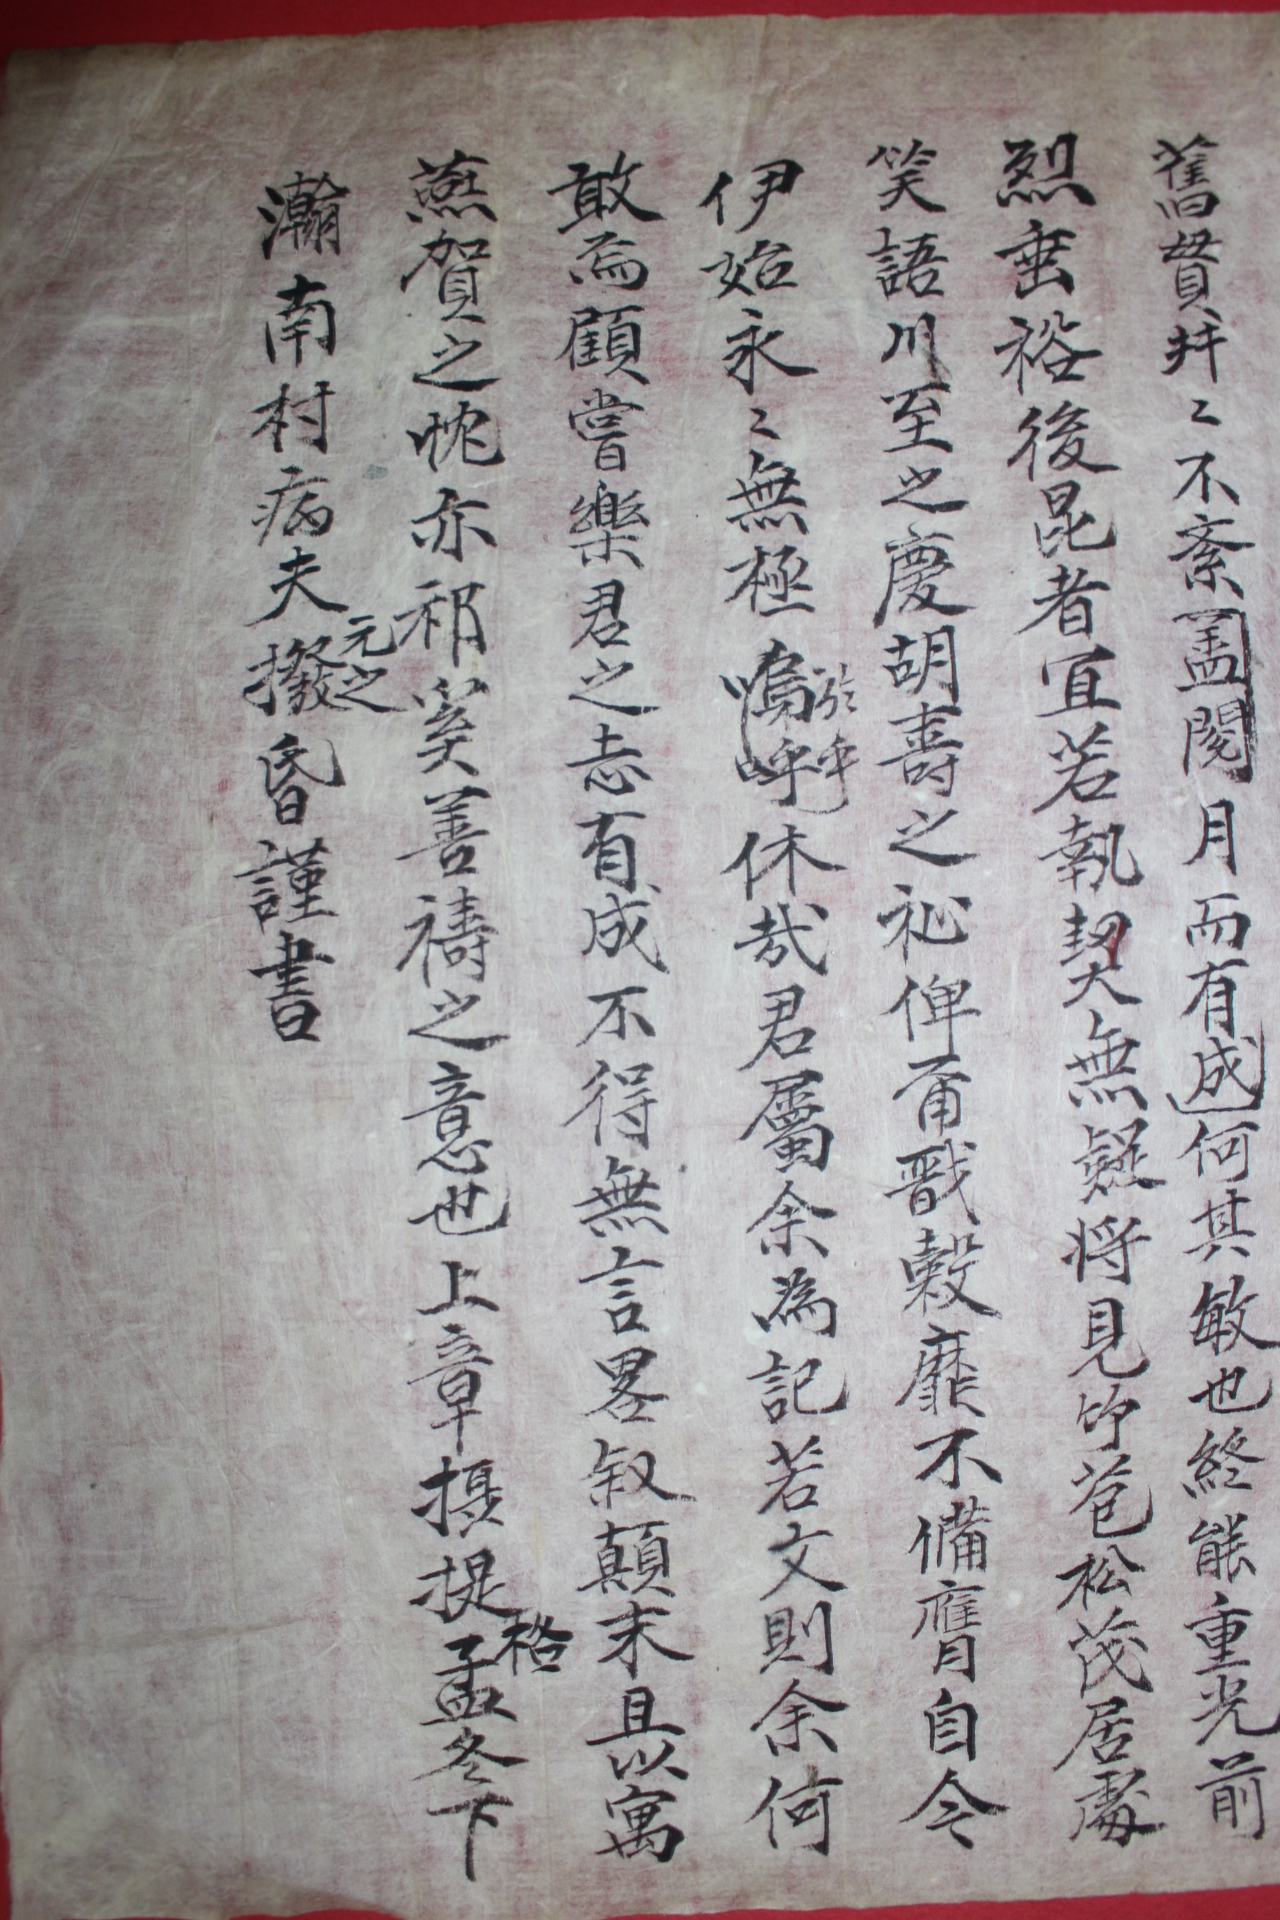 舊貫井〻不紊盖閱月而有成何其敏也終能重光前
烈垂裕後昆者宜若執契無疑將見竹苞松茂居處
笑語川至之慶胡壽之祉俾甭戩穀靡不備膺自今
伊始永〻無極嗚呼於乎休哉君屬余為記若文則余何
敢而顧嘗樂君之志有成不得無言畧叙顛末且以寓
燕賀之忱亦祁奚善禱之意也上章攝提格孟冬下
瀚南村病夫撥元之昏謹書